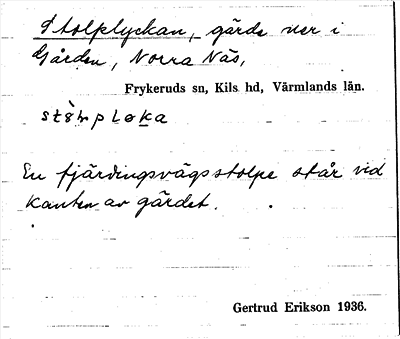 Stolplyckan, gärde ner i
Gården, Norra Näs,
Frykeruds sn, Kils hd, Värmlands län.
En fjärdingsvägsstolpe står vid
kanten av gärdet.
Gertrud Erikson 1936.